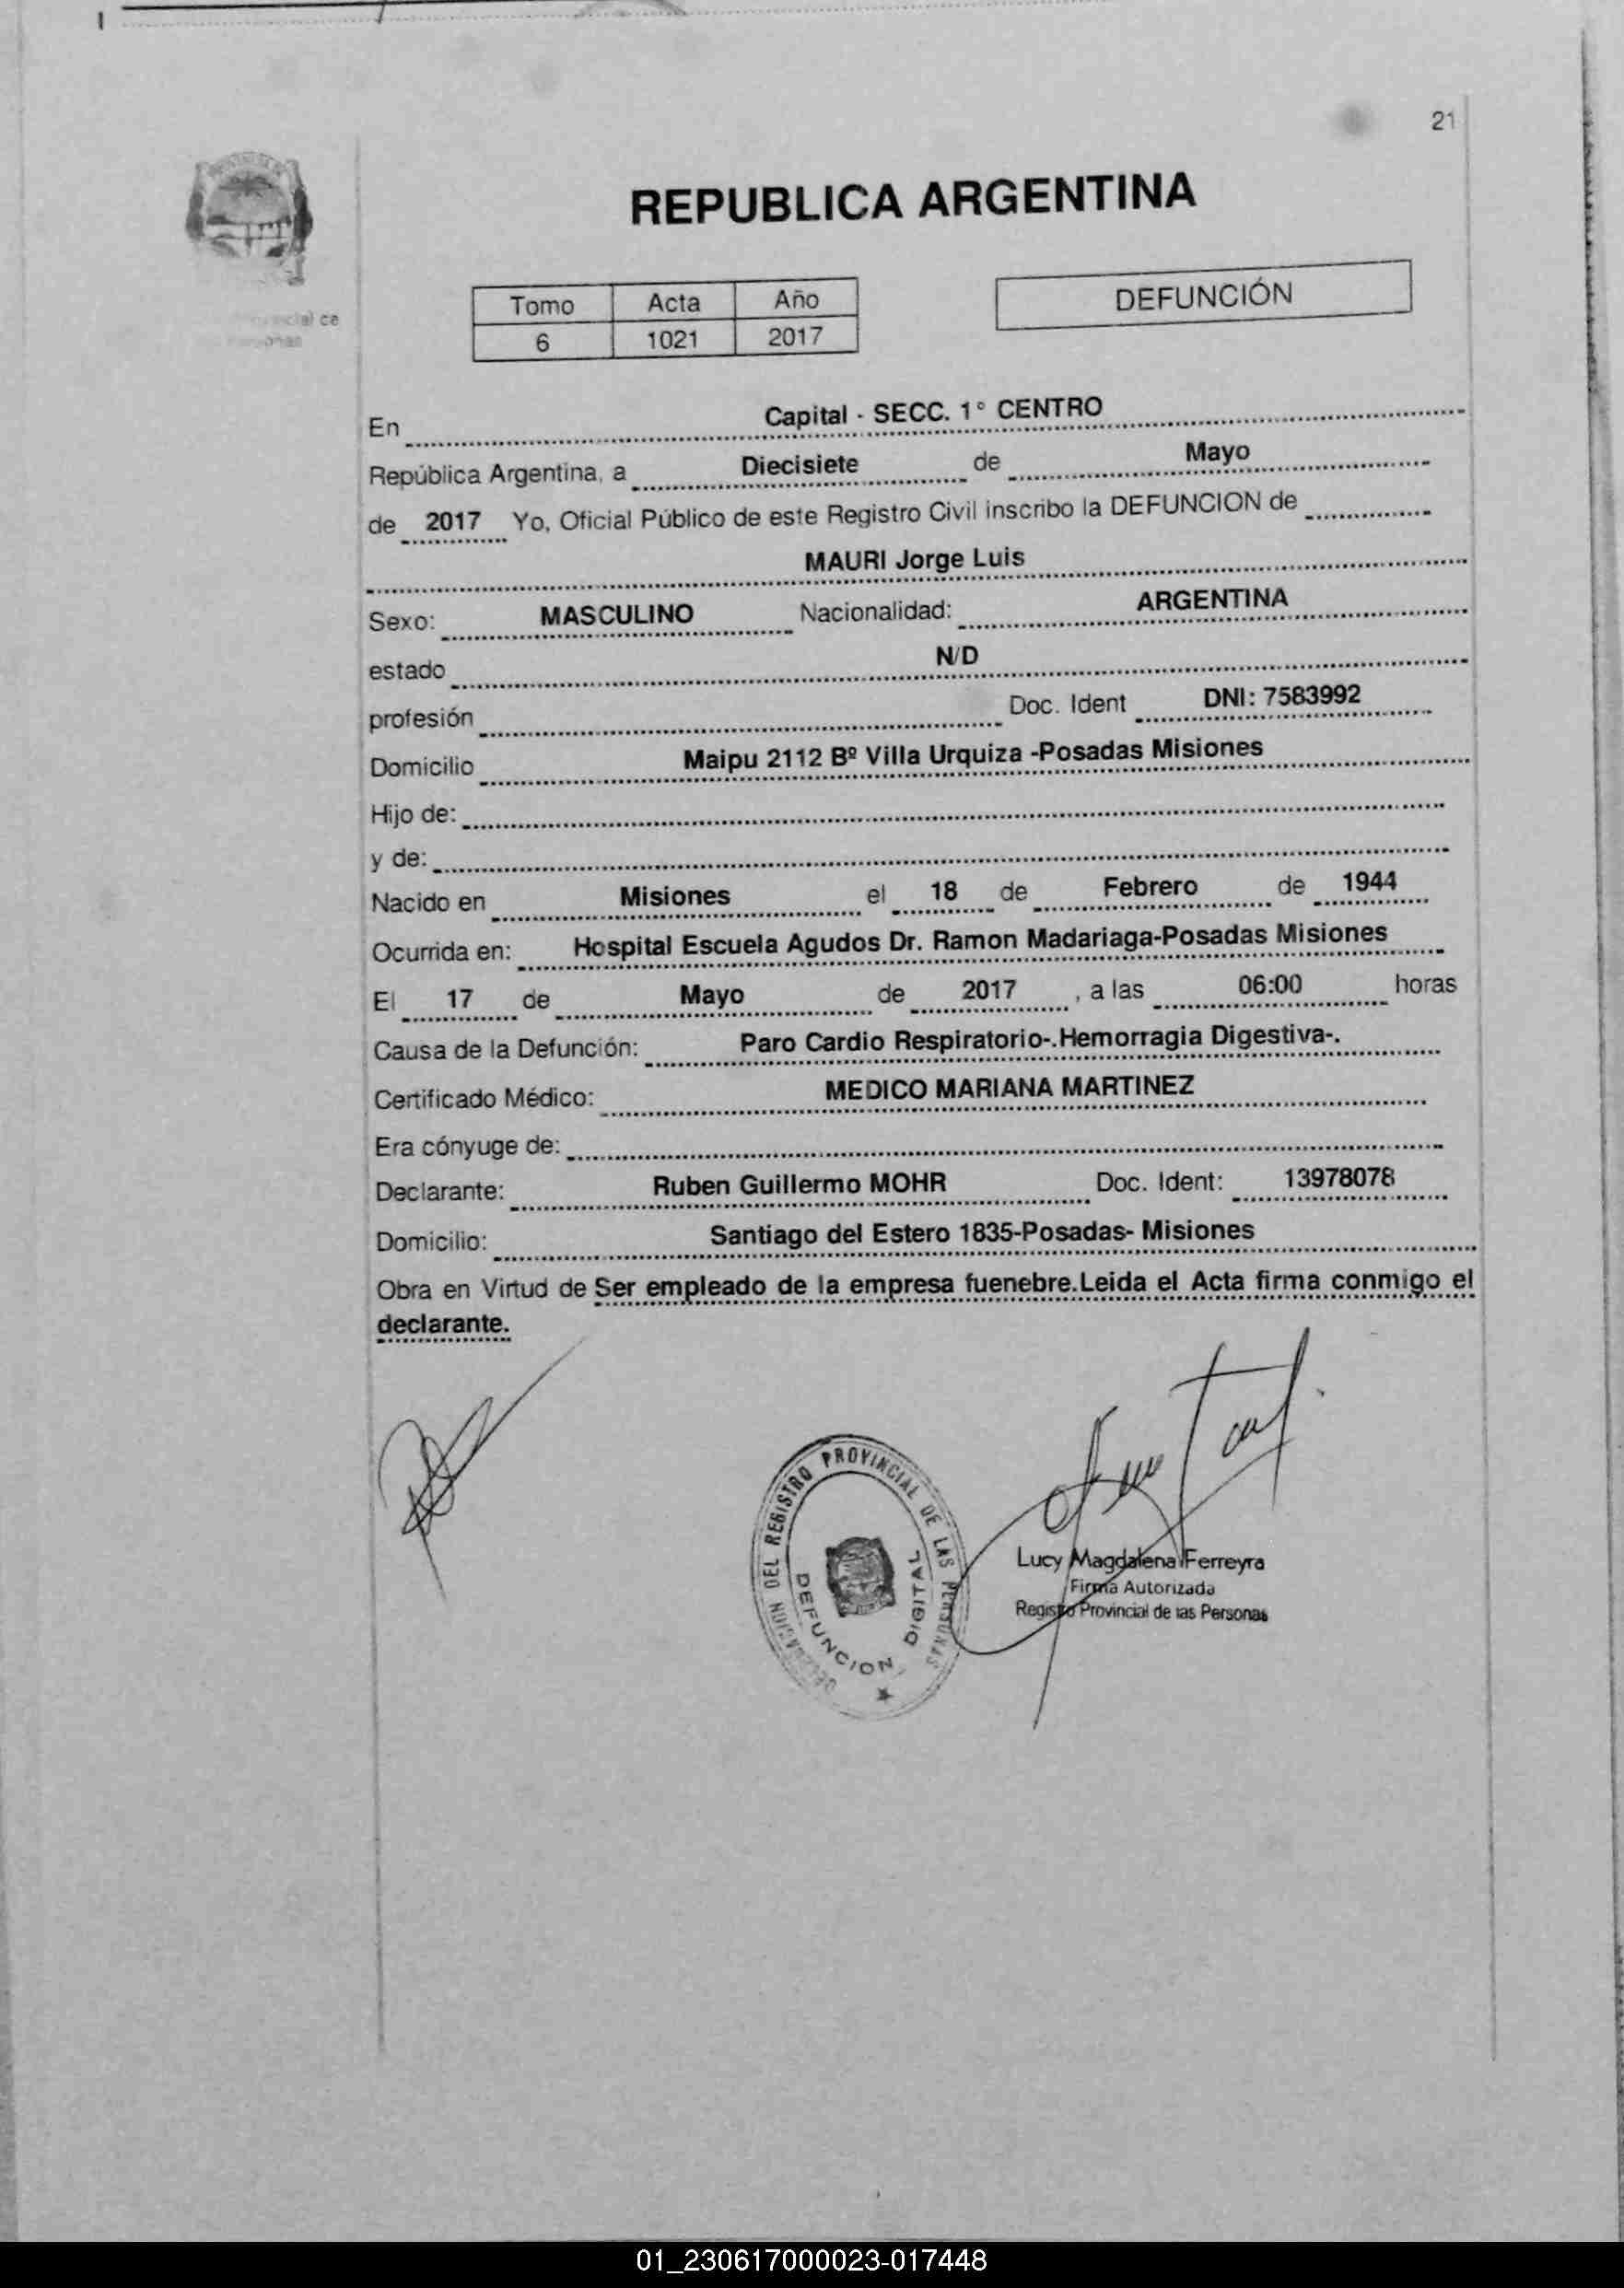 21
REPUBLICA ARGENTINA
Tomo Acta Año
6 1021 2017
DEFUNCIÓN
En Capital - SECC. 1° CENTRO
República Argentina, a Diecisiete de Mayo
de 2017 Yo, Oficial Público de este Registro Civil inscribo la DEFUNCION de
MAURI Jorge Luis
Sexo: MASCULINO Nacionalidad: ARGENTINA
estado N/D
profesión Doc. Ident DNI: 7583992
Domicilio Maipu 2112 Bº Villa Urquiza -Posadas Misiones
Hijo de:
y de:
Nacido en Misiones el 18 de Febrero de 1944
Ocurrida en: Hospital Escuela Agudos Dr. Ramon Madariaga-Posadas Misiones
El 17 de Mayo de 2017 , a las 06:00 horas
Causa de la Defunción: Paro Cardio Respiratorio-.Hemorragia Digestiva-.
Certificado Médico: MEDICO MARIANA MARTINEZ
Era cónyuge de:
Declarante: Ruben Guillermo MOHR Doc. Ident: 13978078
Domicilio: Santiago del Estero 1835-Posadas- Misiones
Obra en Virtud de Ser empleado de la empresa fuenebre.Leida el Acta firma conmigo el
declarante.
DEL REGISTRO PROVINCIAL DE LAS PERSONAS
DEFUNCION DIGITAL
Lucy Magdalena Ferreyra
Firma Autorizada
Registro Provincial de las Personas
01_230617000023-017448